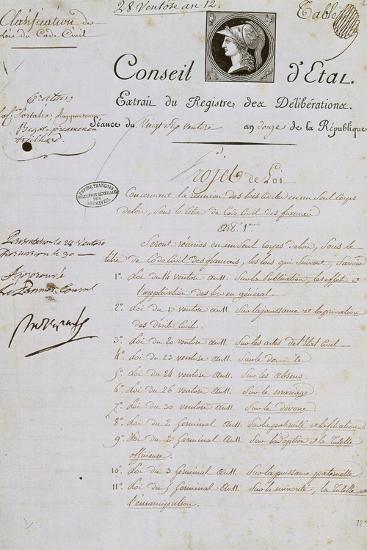 28 Ventôse an 12.
Table
Classification des
Lois du Code Civil
Conseil d'Etat.
Extrait du Registre des Délibérations.
Séance du Vingt Sept ventôse an douze de la République
Orateurs
Portalis,
Bigot-préameneu
Treilhard
Projet de Loi
Concernant la réunion des lois civiles en un seul corps
de lois, sous le titre de Code Civil des français
Art. 1er
Présentation le 24 Ventôse
Discussion le 30
Approuvé
Le Premier Consul
Seront réunies en un seul corps de lois, sous le
titre de Code Civil des français, les lois qui suivent, savoir
1o. Loi du 14 ventôse an 11. Sur la publication, les effets et
l'application des lois en général.
2o. Loi du 17 ventôse an 11. Sur la jouissance et la privation
des Droits Civils.
3o. Loi du 20 ventôse an 11. Sur les actes de l'Etat Civil
4o. Loi du 23 ventôse an 11. Sur le domicile
5o. Loi du 24 ventôse an 11. Sur les absens.
6o. Loi du 26 ventôse an 11. Sur le mariage
7o. Loi du 30 ventôse an 11. Sur le divorce
8o. Loi du 2 Germinal an 11. Sur la paternité et la filiation
9o. Loi du 2 Germinal an 11. Sur l'adoption et la tutelle
officieuse.
10o. Loi du 3 Germinal an 11. Sur la puissance paternelle
11o. Loi du 5 Germinal an 11. Sur la minorité, la tutelle et
l'émancipation.